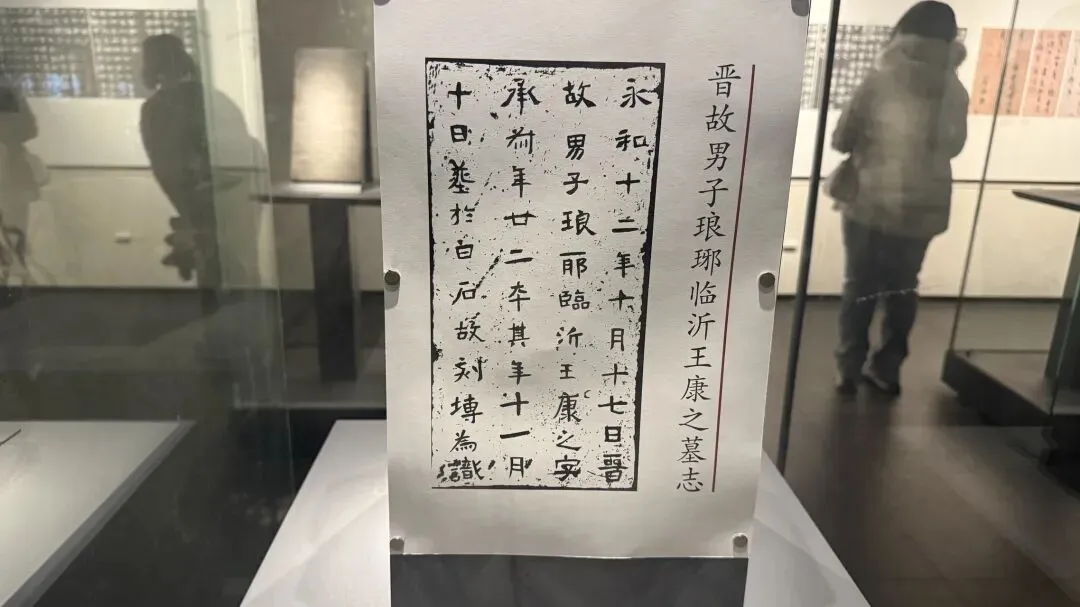 晋故男子琅琊临沂王康之墓志
永和十二年十月十七日晉
故男子琅耶臨沂王康之字
承叔年廿二卒其年十一月
十日葬於白石故刻塼為識